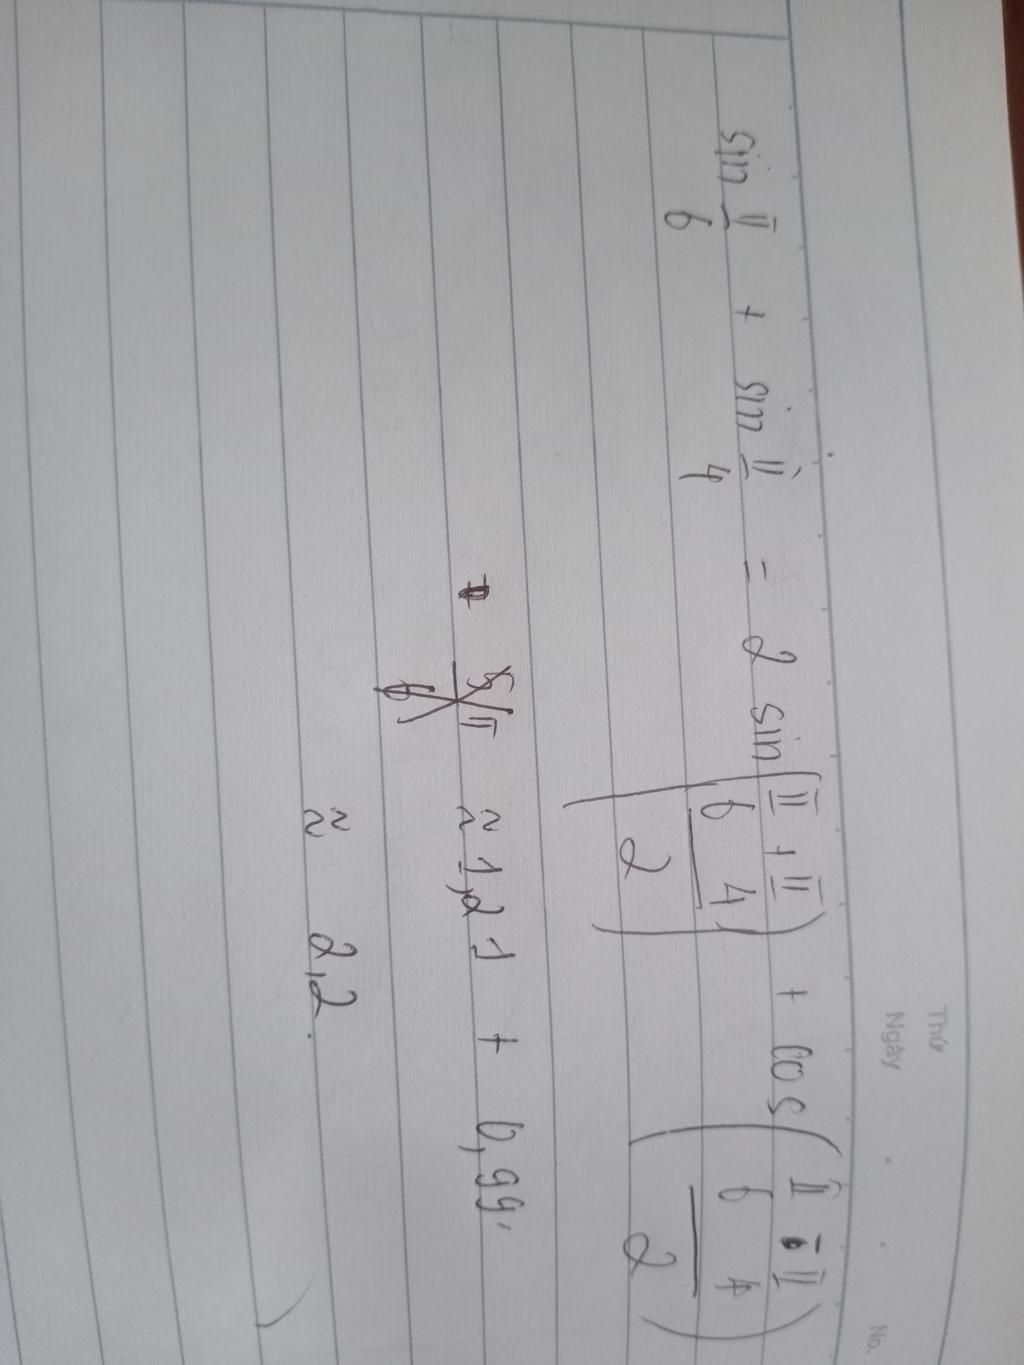 Thứ
Ngày
No.
sin π/6 + sin π/4 = 2 sin((π/6 + π/4)/2) + cos((π/6 - π/4)/2)
5π/6 ≈ 1,21 + 0,99.
≈ 2,2.